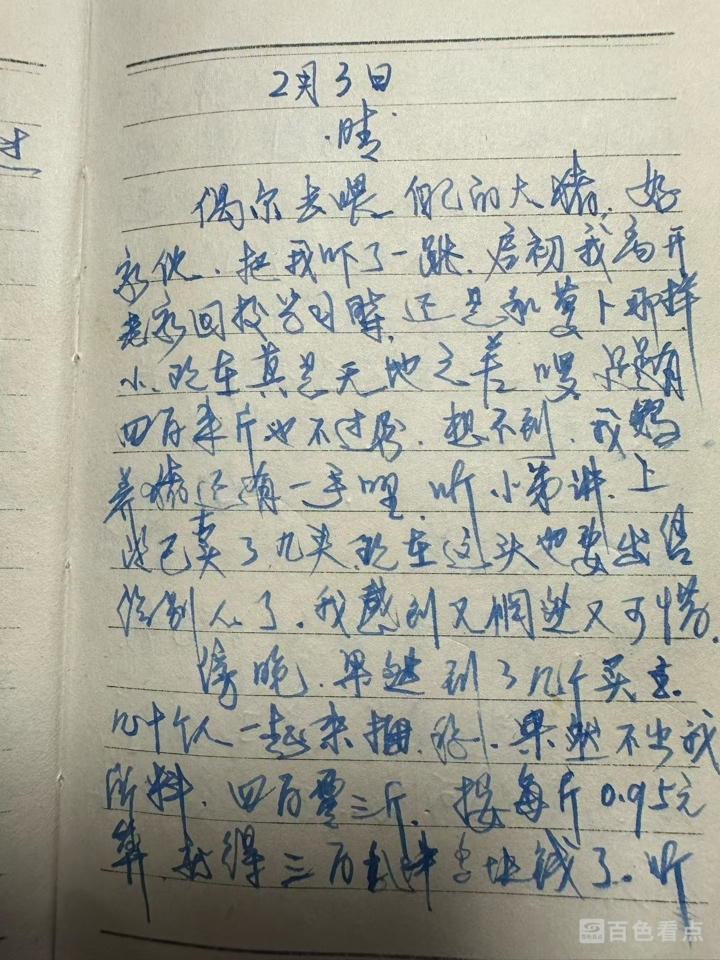 2月3日
晴
偶尔去喂自己的大猪,好
家伙,把我吓了一跳,启初我离开
老家回校学习时,还是和萝卜那样
小,现在真是天地之差嗳,足有
四百来斤也不过份,想不到,我妈
养猪还有一手哩,听小弟讲,上
已卖了九头,现在这头也要出售
给别人了。我感到又惆又可惜。
傍晚,果然到了几个买主,
几十个人一起来捆,称,果然不出我
所料,四百零三斤,按每斤0.95元
算就得三百多块钱了。听
百色看点